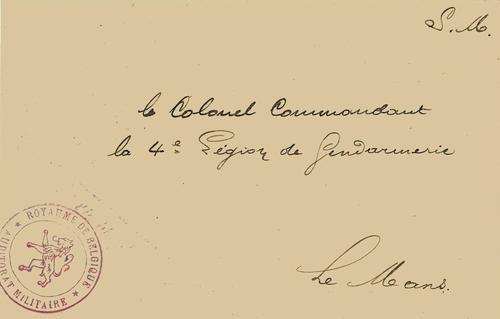 S. M.
le Colonel Commandant
la 4e Légion de Gendarmerie
Le Mans.
ROYAUME DE BELGIQUE
AUDITORAT MILITAIRE